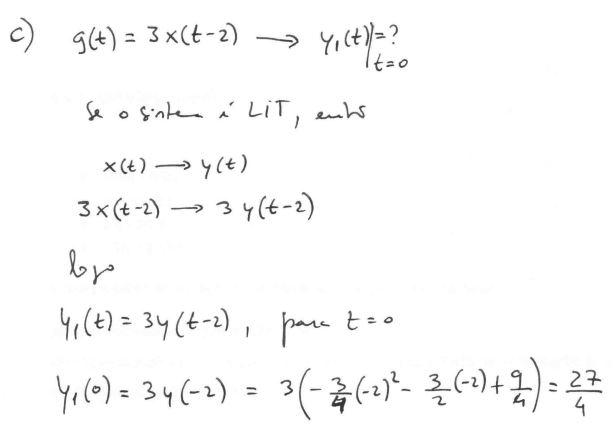 c) g(t) = 3x(t-2) → y₁(t)|=? t=0
Se o sistema é LiT, então
x(t) → y(t)
3x(t-2) → 3y(t-2)
logo
y₁(t) = 3y(t-2), para t=0
y₁(0) = 3y(-2) = 3(-3/4(-2)²-3/2(-2)+9/4) = 27/4